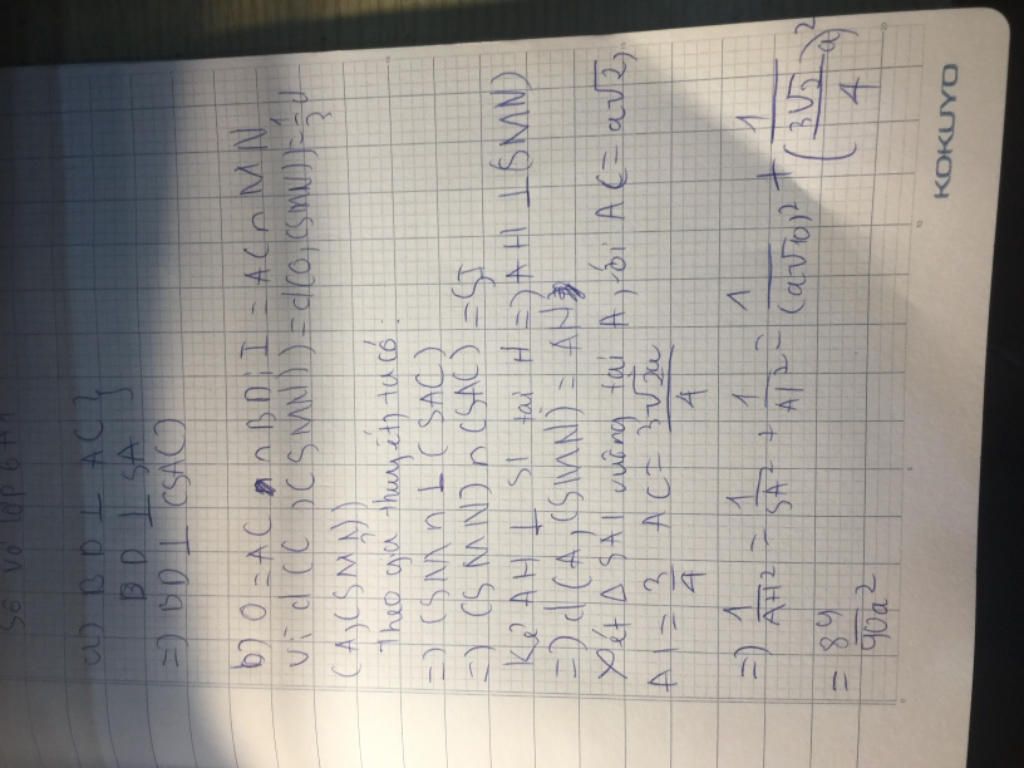 a) BD ⊥ AC }
BD ⊥ SA
=) BD ⊥ (SAC)
b) O = AC ∩ BD; I = AC ∩ MN
Vì d(C,(SMN)) = d(O,(SMN)) = 1/3 d
(A,(SMN))
Theo giả thuyết, ta có:
=) (SMN) ⊥ (SAC)
=) (SMN) ∩ (SAC) = SI
Kẻ AH ⊥ SI tại H =) AH ⊥ (SMN)
=) d(A,(SMN)) = AH
Xét Δ SAI vuông tại A, bởi AC = a√2,
AI = 3/4 AC = 3√2a/4
=) 1/AH² = 1/SA² + 1/AI² = 1/(a√10)² + 1/(3√2/4 a)²
= 89/90a²
KOKUYO